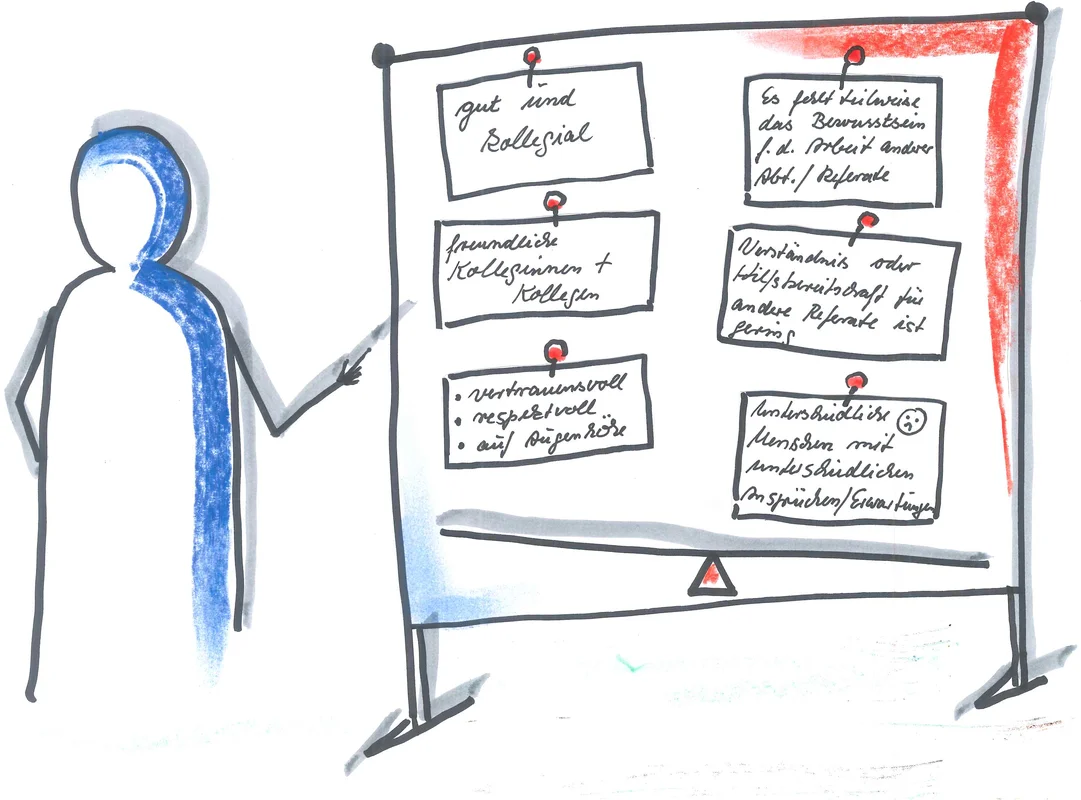 gut und
kollegial
freundliche
Kolleginnen +
Kollegen
• vertrauensvoll
• respektvoll
• auf Augenhöhe
Es fehlt teilweise
das Bewusstsein
f. d. Arbeit anderer
Abt. / Referate
Verständnis oder
Hilfsbereitschaft für
andere Referate ist
gering
Unterschiedliche
Menschen mit
unterschiedlichen
Ansprüchen/Erwartungen